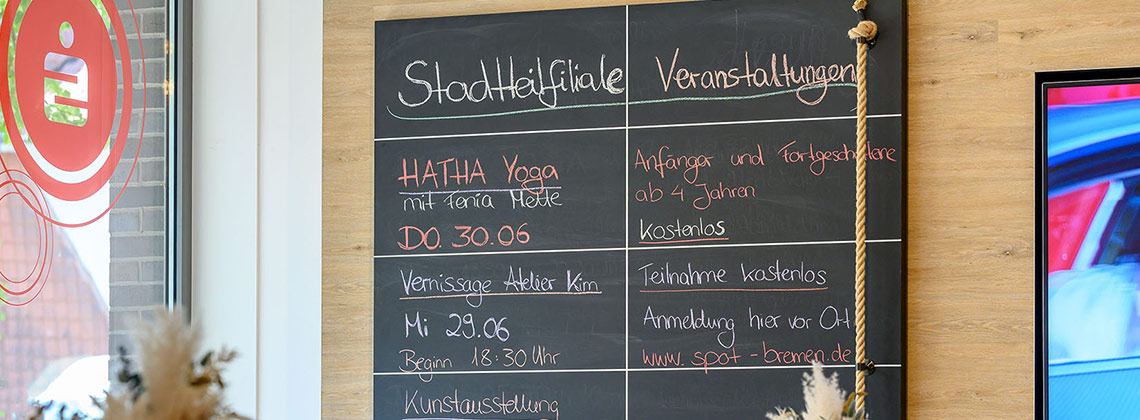 Stadtteilfiliale Veranstaltungen
HATHA Yoga
mit Fenia Mette
DO. 30.06
Anfänger und Fortgeschrittene
ab 4 Jahren
kostenlos
Vernissage Atelier Kim
Mi 29.06
Beginn 18:30 Uhr
Teilnahme kostenlos
Anmeldung hier vor Ort
www.spot-bremen.de
Kunstausstellung